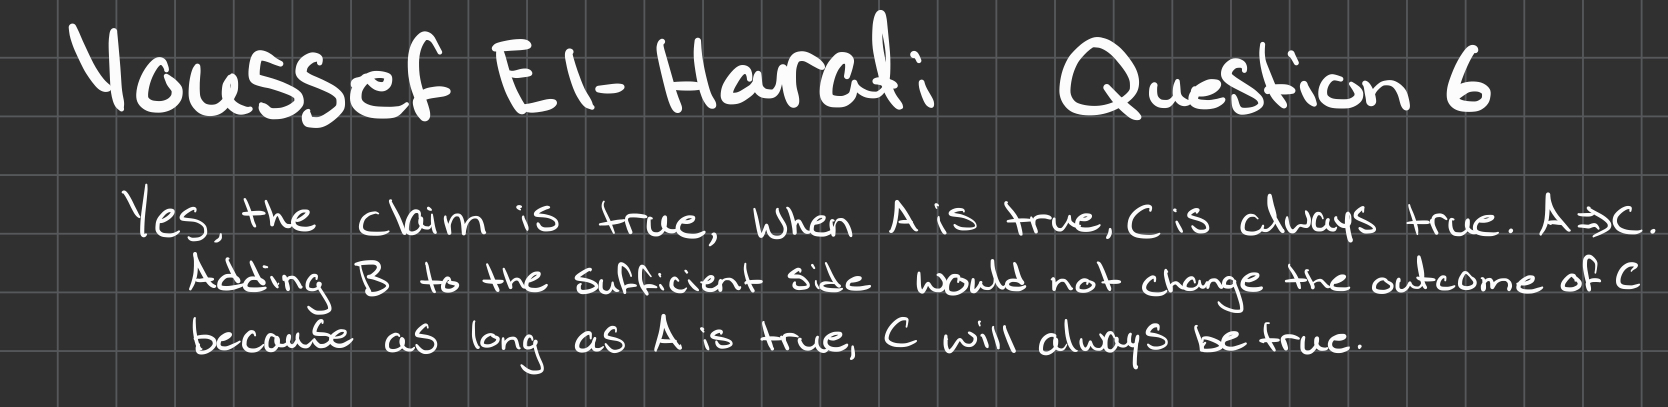 Youssef El-Harafi Question 6
Yes, the claim is true, When A is true, C is always true. A⇒C.
Adding B to the sufficient side would not change the outcome of C
because as long as A is true, C will always be true.